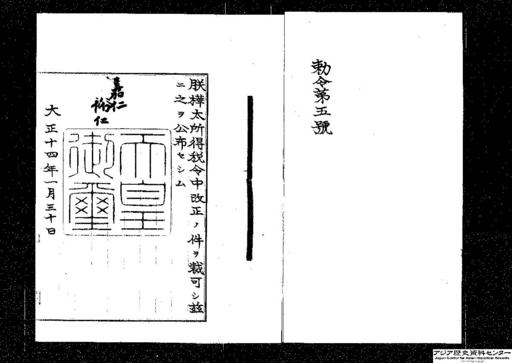 勅令第五號
朕樺太所得税令中改正ノ件ヲ裁可シ茲
ニ之ヲ公布セシム
嘉仁
裕仁
天皇
御璽
大正十四年一月三十日
アジア歴史資料センター
Japan Center for Asian Historical Records